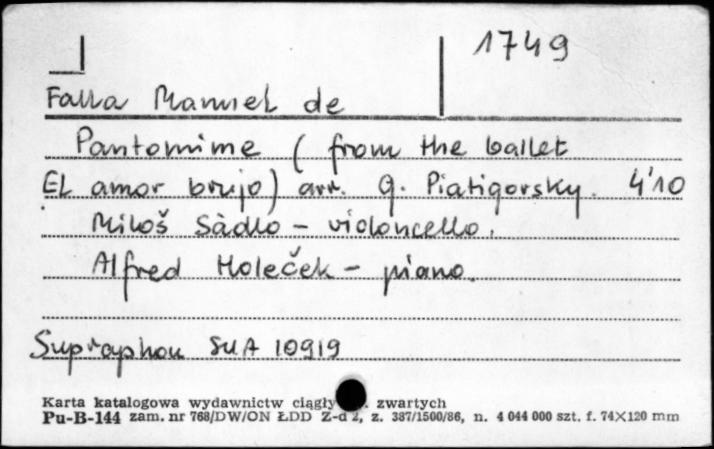 1749
Falla Manuel de
Pantomime (from the ballet
El amor brujo) arr. G. Piatigorsky. 4'10
Miloš Sàdlo - violoncello.
Alfred Holeček - piano.
Supraphon SUA 10919
Karta katalogowa wydawnictw ciągły zwartych
Pu-B-144 zam. nr 768/DW/ON ŁDD Z-d 2, z. 387/1500/86, n. 4 044 000 szt. f. 74×120 mm